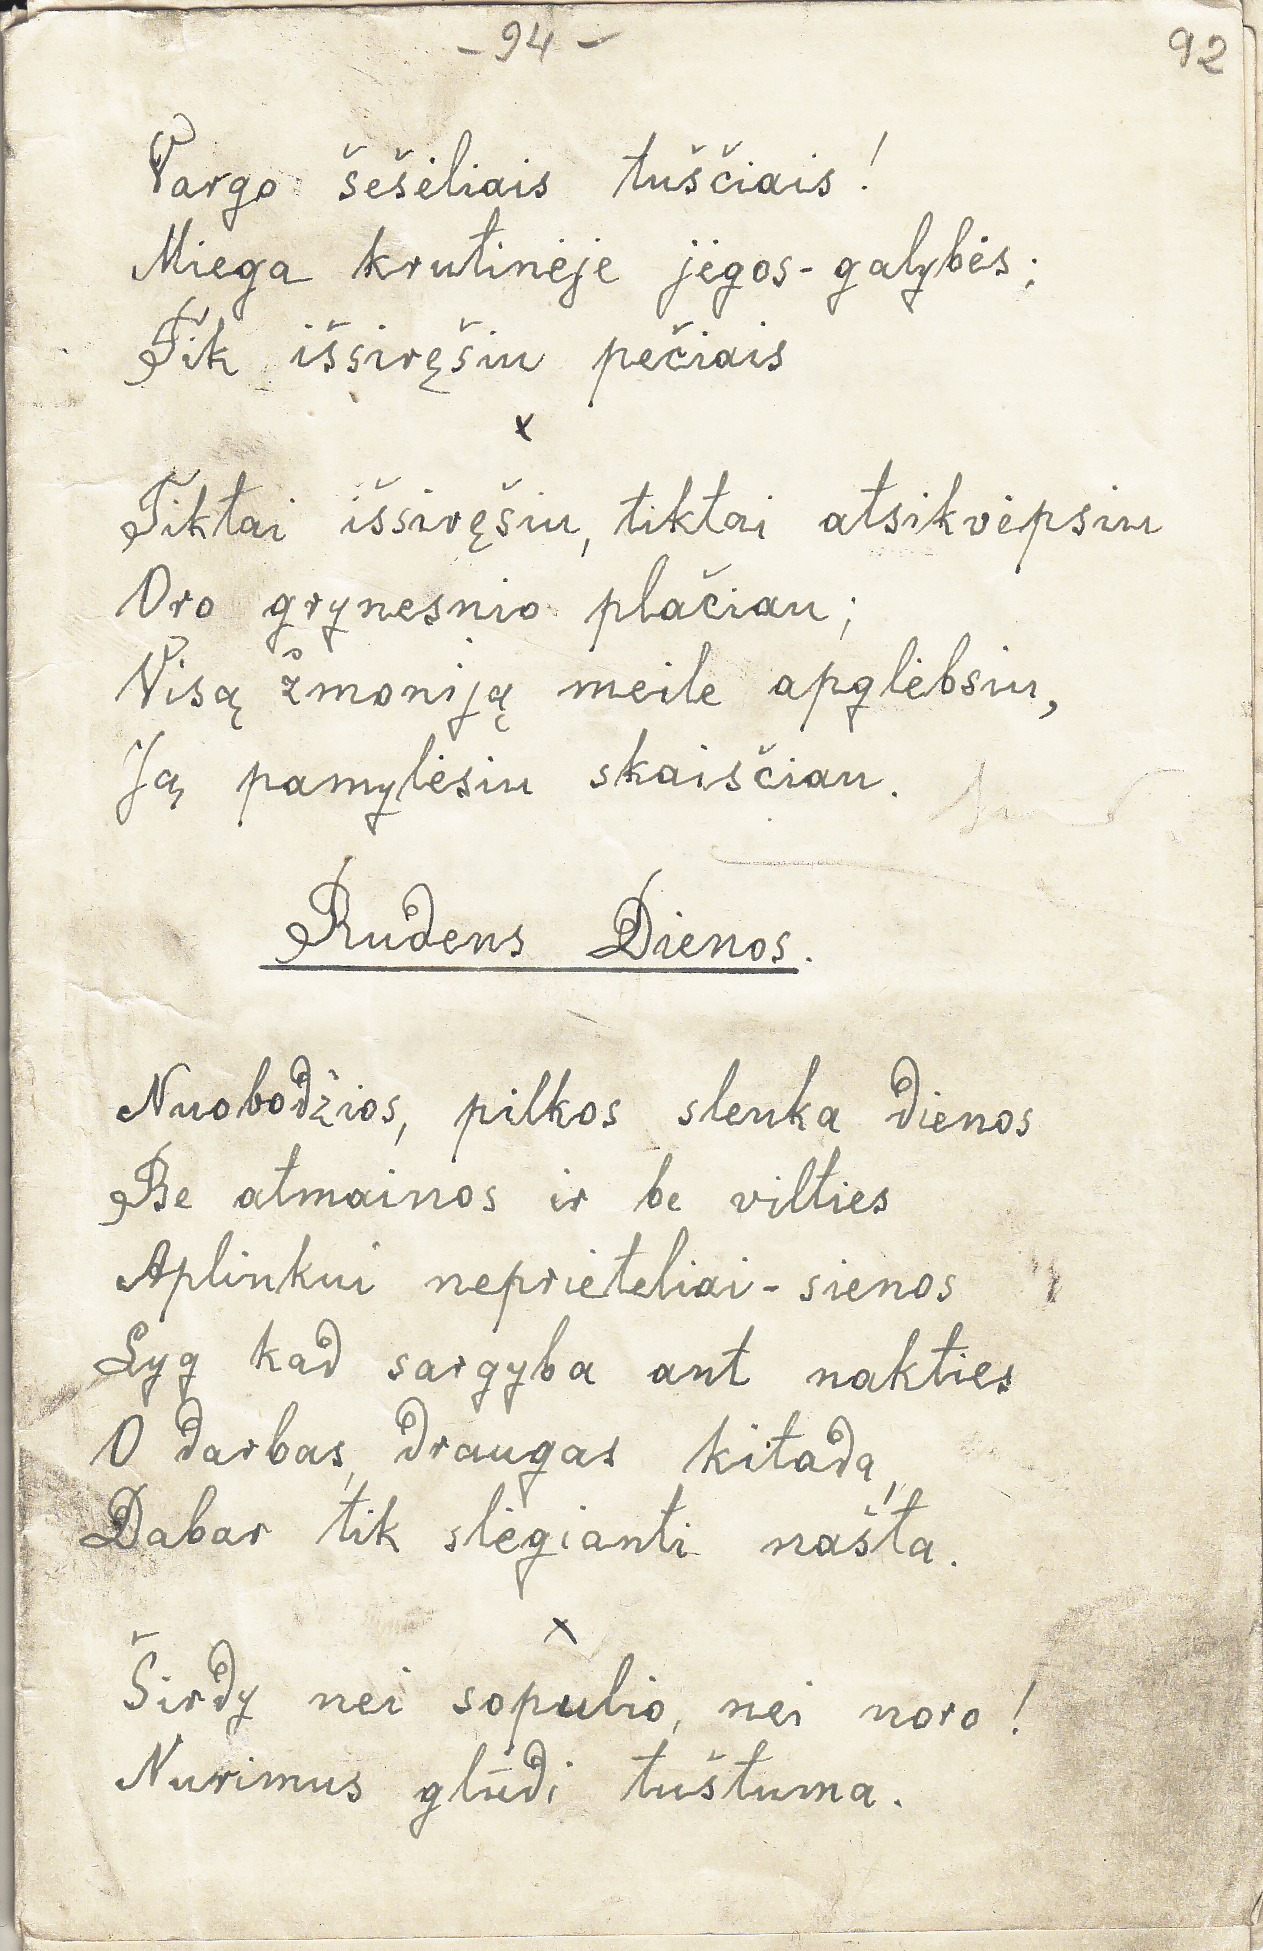 - 94 -
92
Vargo šešėliais tuščiais!
Miega krutinėje jėgos - galybės;
Tik išsiręšiu pečiais
x
Tiktai išsiręšiu, tiktai atsikvėpsiu
Oro grynesnio plačiau;
Visą žmoniją meile apglėbsiu,
Ją pamylėsiu skaisčiau.
Rudens Dienos.
Nuobodžios, pilkos slenka dienos
Be atmainos ir be vilties
Aplinkui neprieteliai - sienos
Lyg kad sargyba ant nakties
O darbas, draugas kitada,
Dabar tik slėgianti našta.
x
Širdy nei sopulio, nei noro!
Nurimus glūdi tuštuma.